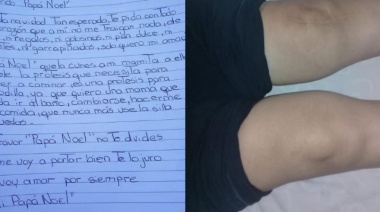 do Papá Noel"
navidad Tan esperada, Te pido con todo
corazón que a mi no me Traigan nada, de
ni regalos, ni golosinas, ni pan dulce, ni
ni garrapiñados, solo quiero mi
Noel" que la cures a mi mamita a ella
le la prótesis que necesita para
r a caminar, es una protesis para
odilla, ya que quiero una mama que
da ir al baño, cambiarse, hacerme
comida, que nunca más use la silla
uedas.
favor "Papá Noel" no Te olvides
me voy a portar bien Te lo juro
voy amar por siempre
i Papá Noel"